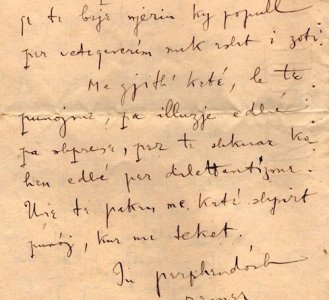 që te bije njérin ky popull
per vetëqeverim nuk eshte i zoti.
Me gjithë keté, le te
punojmë, pa illuzje edhé
pa shprese, per te shkuar ko-
hen edhé per dilettantizme.
Une te pakën me keté shpirt
punój, kur me teket.
Iu perphendósh